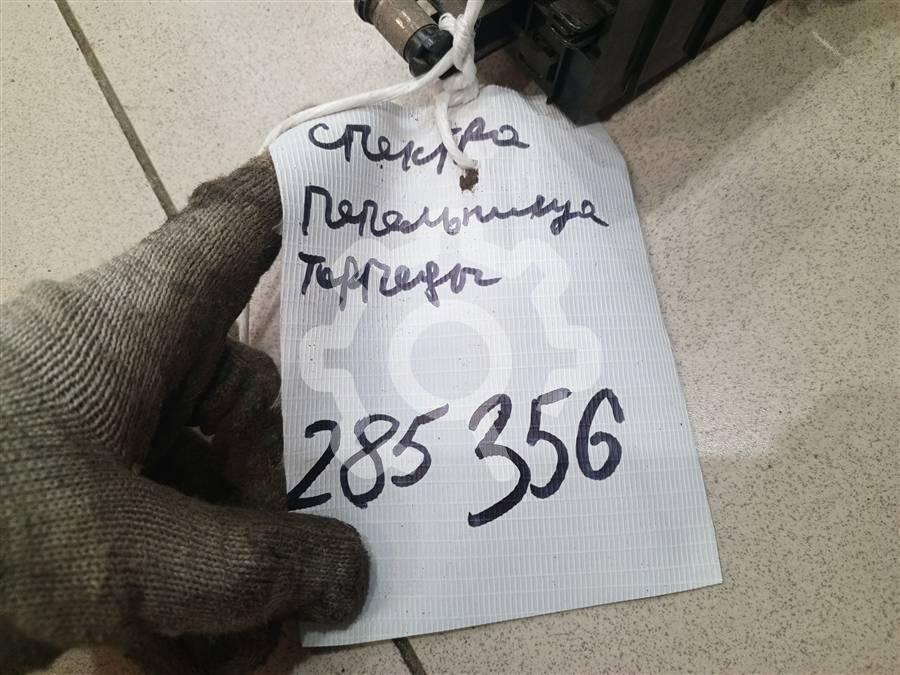 Спектра
Пепельница
Торпеды
285 356